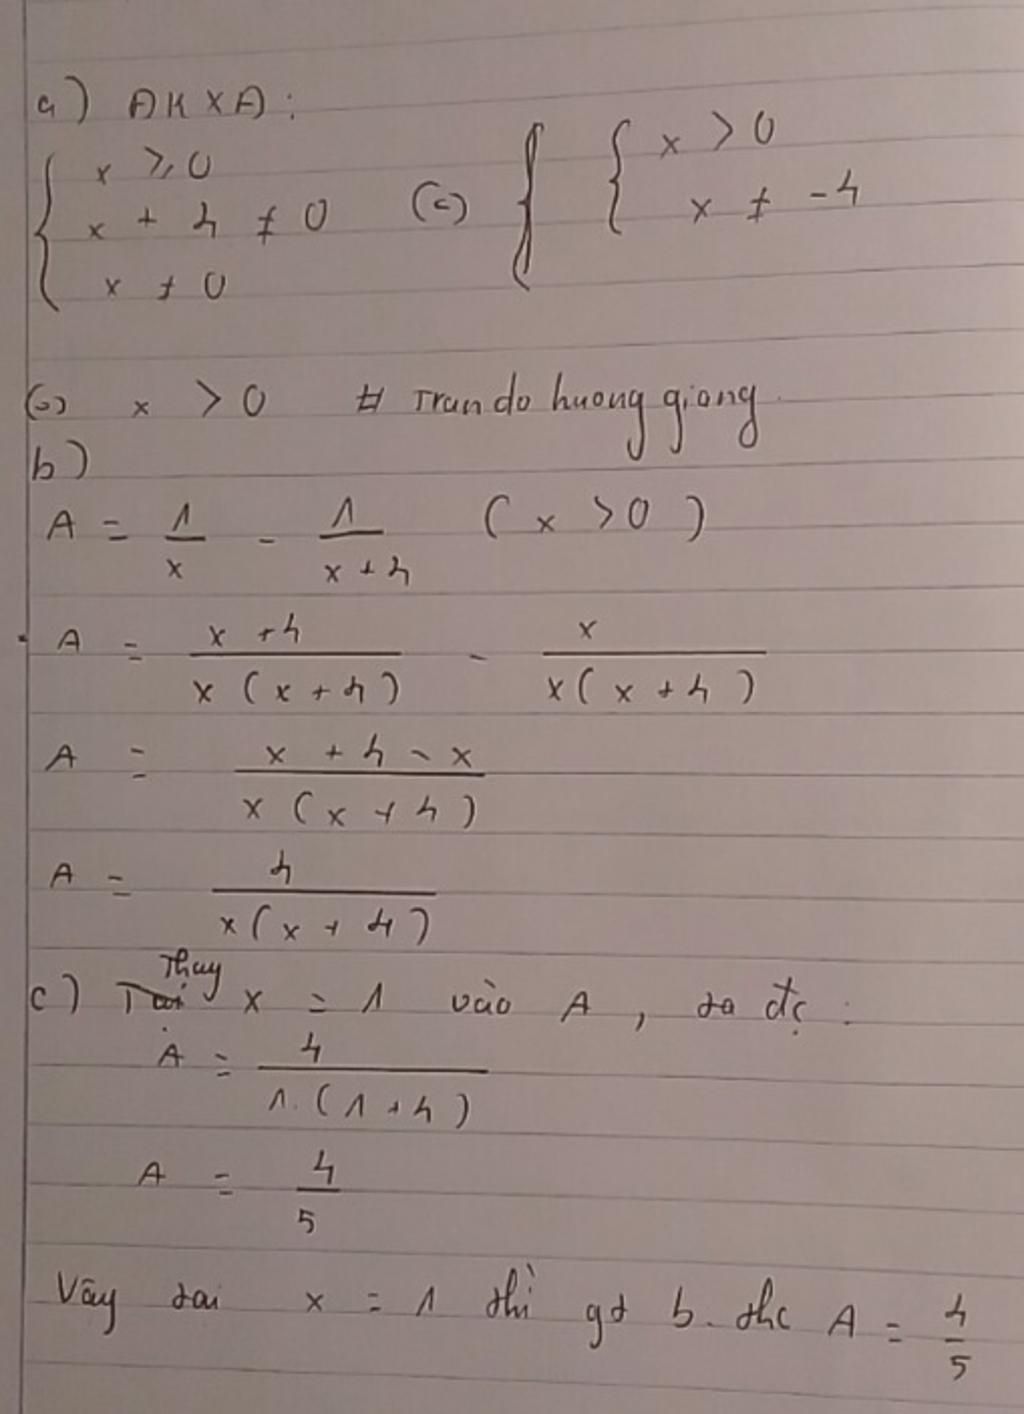 a) ĐKXĐ:
{ x ≥ 0
x + 4 ≠ 0
x ≠ 0
(=) { { x > 0
x ≠ -4
(=) x > 0 # Trando huong giang
b)
A = 1/x - 1/(x + 4) ( x > 0 )
A = (x + 4)/(x ( x + 4 )) - x/(x ( x + 4 ))
A = (x + 4 - x)/(x ( x + 4 ))
A = 4/(x ( x + 4 ))
c) Thay x = 1 vào A , ta đc :
A = 4/(1. ( 1 + 4 ))
A = 4/5
Vậy tai x = 1 thì gt b. thc A = 4/5